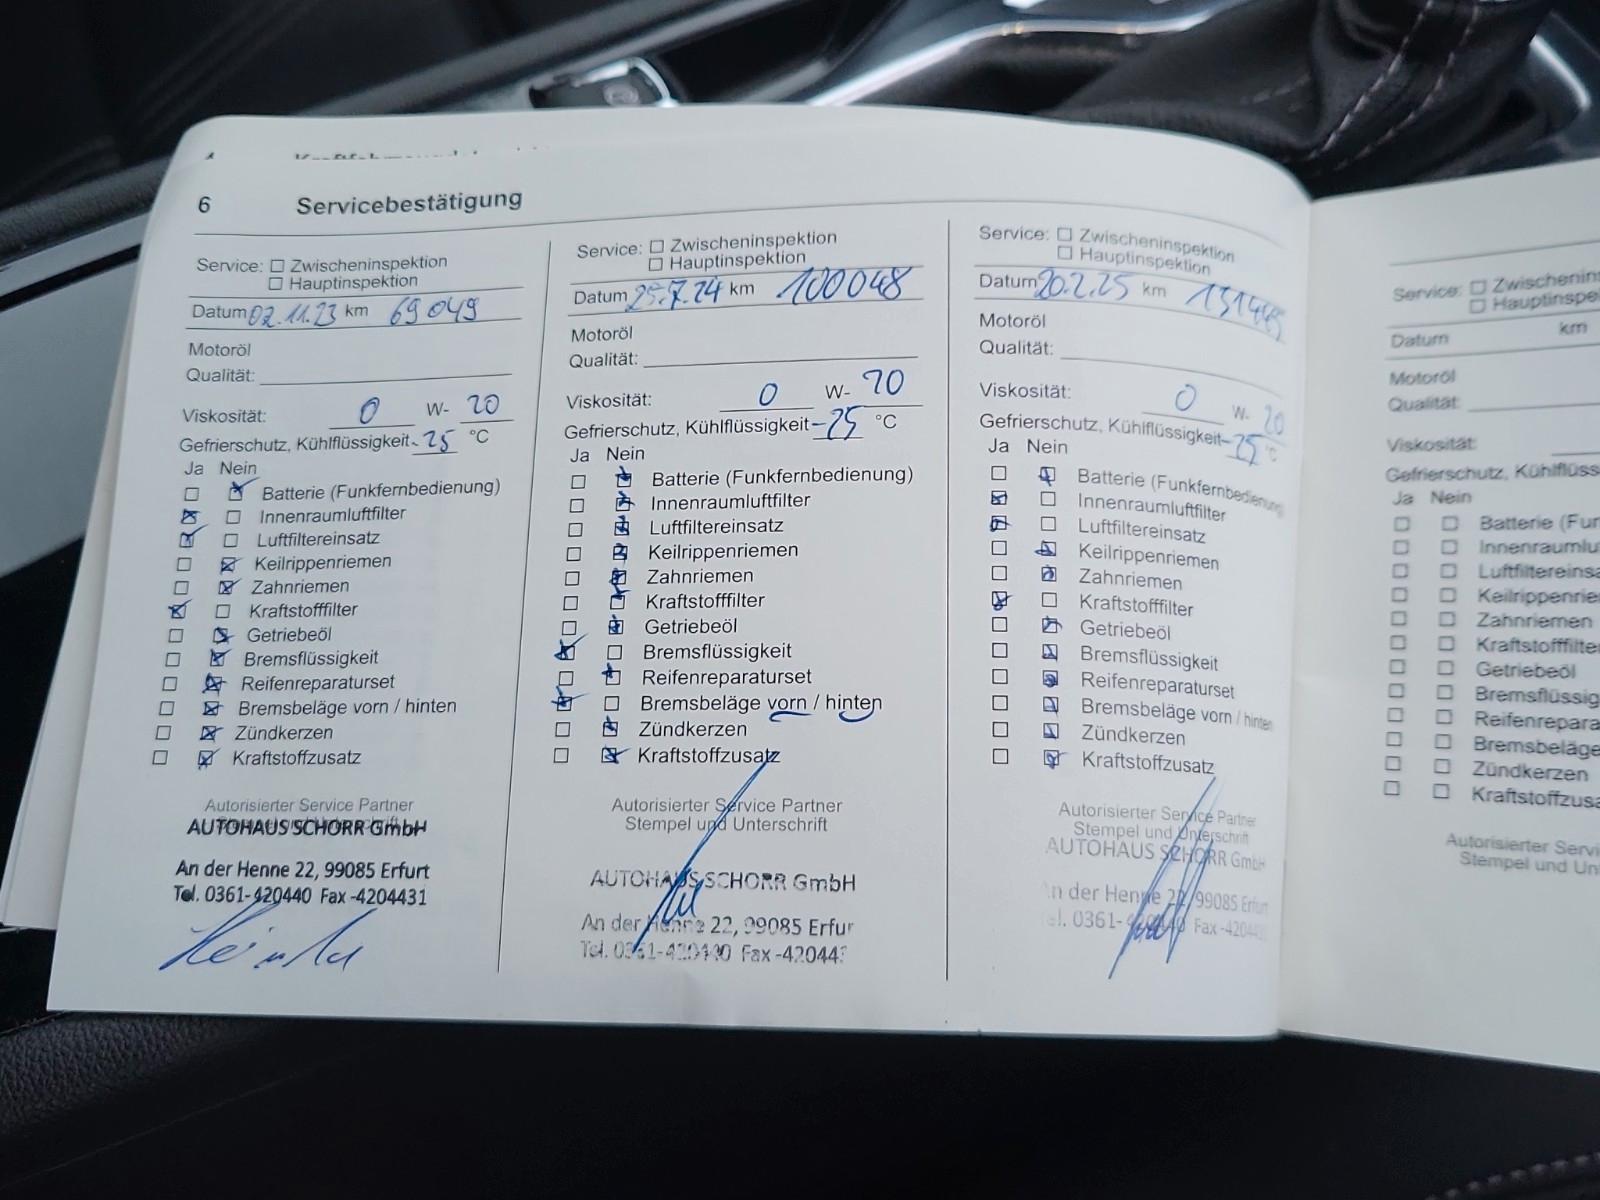 6 Servicebestätigung
Service: Zwischeninspektion
Hauptinspektion
Datum 02.11.23 km 69049
Motoröl
Qualität:
Viskosität: 0 W- 20
Gefrierschutz, Kühlflüssigkeit -25 °C
Ja Nein
Batterie (Funkfernbedienung)
Innenraumluftfilter
Luftfiltereinsatz
Keilrippenriemen
Zahnriemen
Kraftstofffilter
Getriebeöl
Bremsflüssigkeit
Reifenreparaturset
Bremsbeläge vorn / hinten
Zündkerzen
Kraftstoffzusatz
Autorisierter Service Partner
Stempel und Unterschrift
AUTOHAUS SCHORR GmbH
An der Henne 22, 99085 Erfurt
Tel. 0361-420440 Fax -4204431
Service: Zwischeninspektion
Hauptinspektion
Datum 25.7.24 km 100048
Motoröl
Qualität:
Viskosität: 0 W- 20
Gefrierschutz, Kühlflüssigkeit -25 °C
Ja Nein
Batterie (Funkfernbedienung)
Innenraumluftfilter
Luftfiltereinsatz
Keilrippenriemen
Zahnriemen
Kraftstofffilter
Getriebeöl
Bremsflüssigkeit
Reifenreparaturset
Bremsbeläge vorn / hinten
Zündkerzen
Kraftstoffzusatz
Autorisierter Service Partner
Stempel und Unterschrift
AUTOHAUS SCHORR GmbH
An der Henne 22, 99085 Erfur
Tel. 0361-420440 Fax -42044
Service: Zwischeninspektion
Hauptinspektion
Datum 20.2.25 km
Motoröl
Qualität:
Viskosität: 0 W- 20
Gefrierschutz, Kühlflüssigkeit -25 °C
Ja Nein
Batterie (Funkfernbedienung
Innenraumluftfilter
Luftfiltereinsatz
Keilrippenriemen
Zahnriemen
Kraftstofffilter
Getriebeöl
Bremsflüssigkeit
Reifenreparaturset
Bremsbeläge vorn / hinten
Zündkerzen
Kraftstoffzusatz
Autorisierter Service Partner
Stempel und Unterschrift
AUTOHAUS SCHORR GmbH
An der Henne 22, 99085 Erfurt
el. 0361-420440 Fax -420443
Service: Zwischenins
Hauptinspe
Datum km
Motoröl
Qualität:
Viskosität:
Gefrierschutz, Kühlflüss
Ja Nein
Batterie (Fun
Innenraumlu
Luftfiltereinsa
Keilrippenrie
Zahnriemen
Kraftstofffilte
Getriebeöl
Bremsflüssig
Reifenrepara
Bremsbeläge
Zündkerzen
Kraftstoffzusa
Autorisierter Servi
Stempel und Un